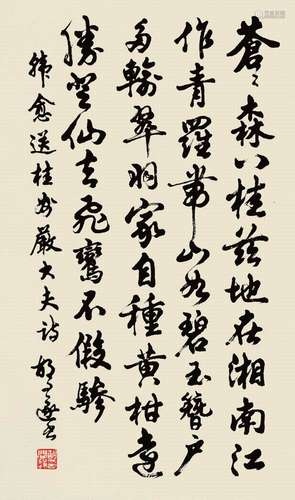 蒼〻森八桂茲地在湘南江
作青羅帶山如碧玉簪户
多輸翠羽家自種黄柑遠
勝登仙去飛鸞不假驂
韓愈送桂州嚴大夫詩 胡問遂書